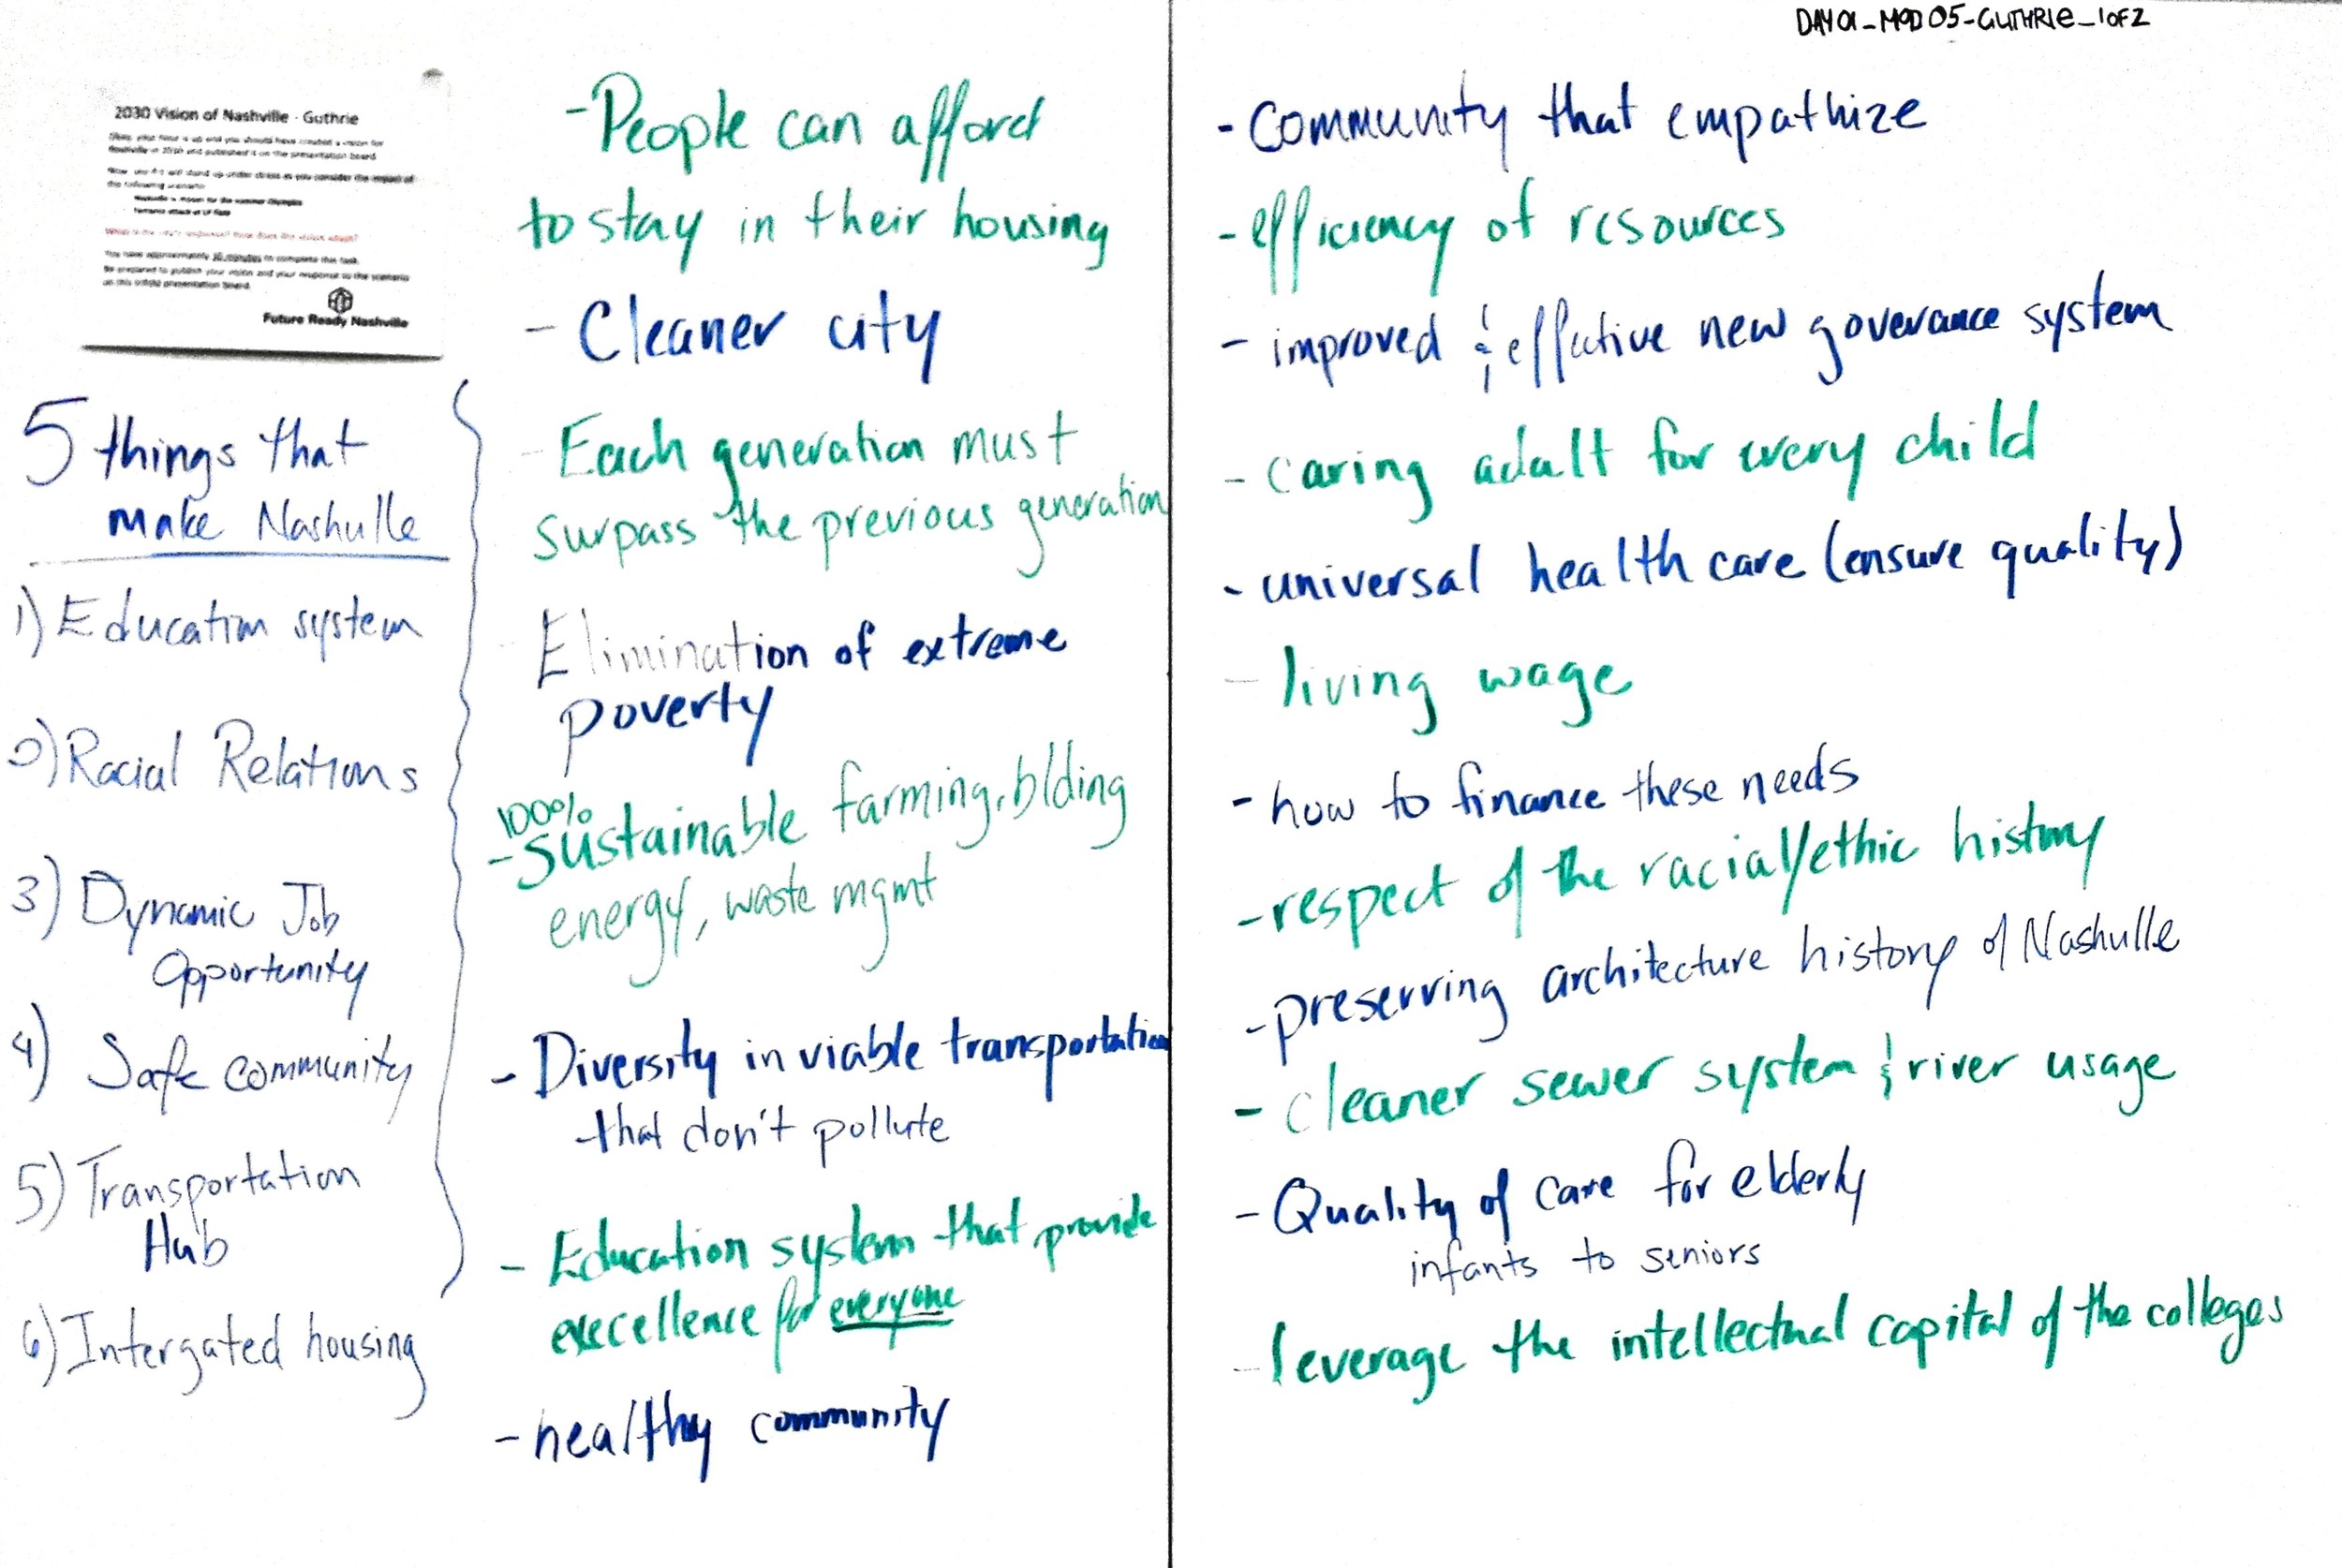 DAY01_MOD05-GUTHRIE_1OF2
2030 Vision of Nashville - Guthrie
You have approximately 30 minutes to complete this task.
Be prepared to publish your vision and your response to the scenario
on this trifold presentation board.
Future Ready Nashville
5 things that
make Nashville
1) Education system
2) Racial Relations
3) Dynamic Job
Opportunity
4) Safe community
5) Transportation
Hub
6) Intergated housing
- People can afford
to stay in their housing
- Cleaner city
- Each generation must
surpass the previous generation
- Elimination of extreme
poverty
100%
- Sustainable farming, blding
energy, waste mgmt
- Diversity in viable transportation
that don't pollute
- Education system that provide
execellence for everyone
- healthy community
- Community that empathize
- efficiency of resources
- improved & effective new goverance system
- caring adalt for every child
- universal health care (ensure quality)
- living wage
- how to finance these needs
- respect of the racial/ethic history
- preserving architecture history of Nashville
- cleaner sewer system & river usage
- Quality of care for elderly
infants to seniors
- leverage the intellectual capital of the colleges